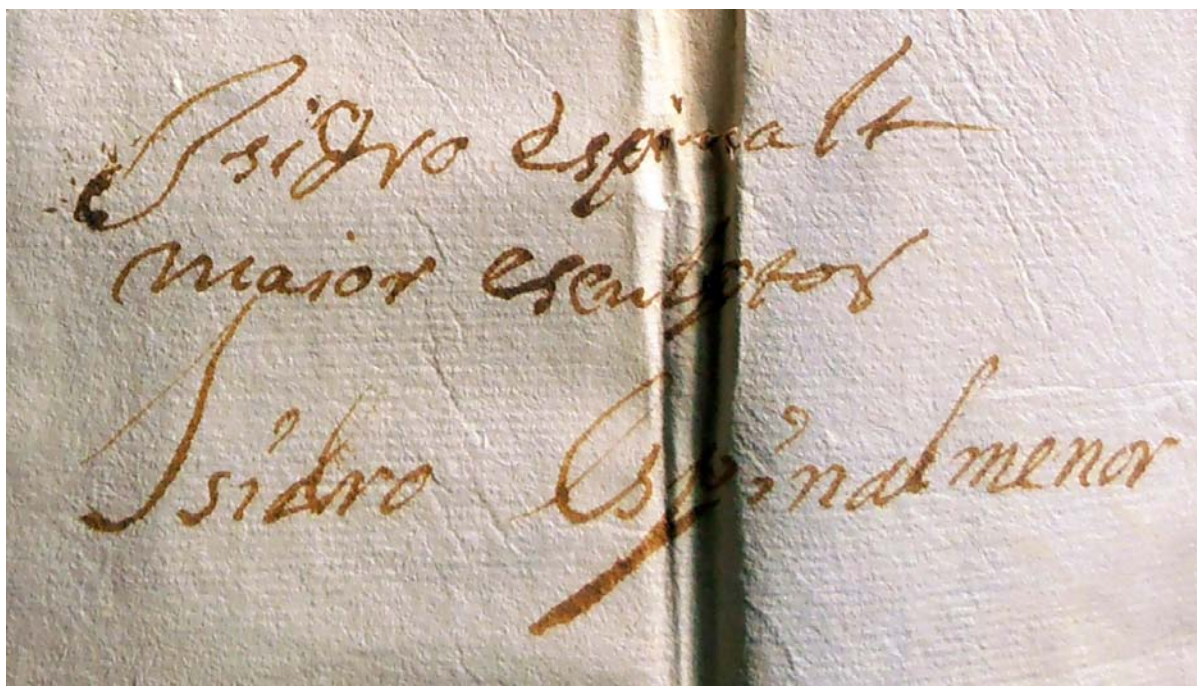 Isidro espinalt
maior escultptor
Isidro Espinal menor